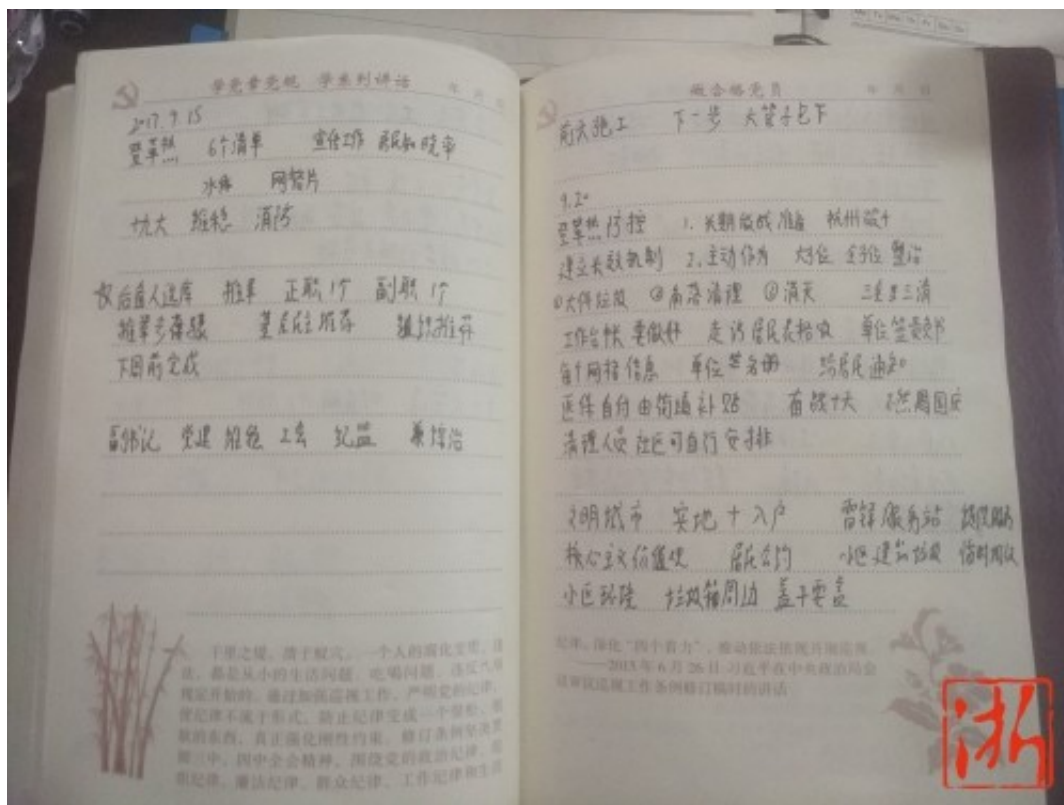 学党章党规 学系列讲话 年 月 日
2017.9.15
登革热 6个清单 宣传工作 居民知晓率
水 网 片
十九大 维稳 消防
后备人选库 推荐 正职1个 副职1个
推荐步骤 基层民主推荐 组织推荐
下周前完成
副书记 党建 维稳 工会 纪监 兼综治
千里之堤，溃于蚁穴。一个人的腐化变质，违
法，都是从小的生活问题、吃喝问题、违反八项
规定开始的。通过加强巡视工作，严明党的纪律，
使纪律不流于形式，防止纪律变成一个
的东西，真正强化刚性约束。修订条例坚决贯
三中、四中全会精神，围绕党的政治纪律、组
织纪律、廉洁纪律、群众纪律、工作纪律和生活
做合格党员 年 月 日
前 施工 下一步 大管子包下
9.20
登革热防控 1.长期做战准备 杭州
建立长效机制 2.主动作为 到位 整治
①大件垃圾 ②角落清理 ③消灭 三 三清
工作台帐要做好 走访居民表格收 单位签责任书
每个网格信息 单位签名册 给居民通知
由街道补贴 国庆
清理人员 社区可自行安排
文明城市 实地+入户 雷锋服务站 便民服务
核心主义价值观 居民公约 小区建筑垃圾 临时
小区 垃圾箱周边 盖子要盖
纪律，深化“四个着力”，推动依法依规开展巡视。
——2015年6月26日习近平在中央政治局会
议审议巡视工作条例修订稿时的讲话
浙